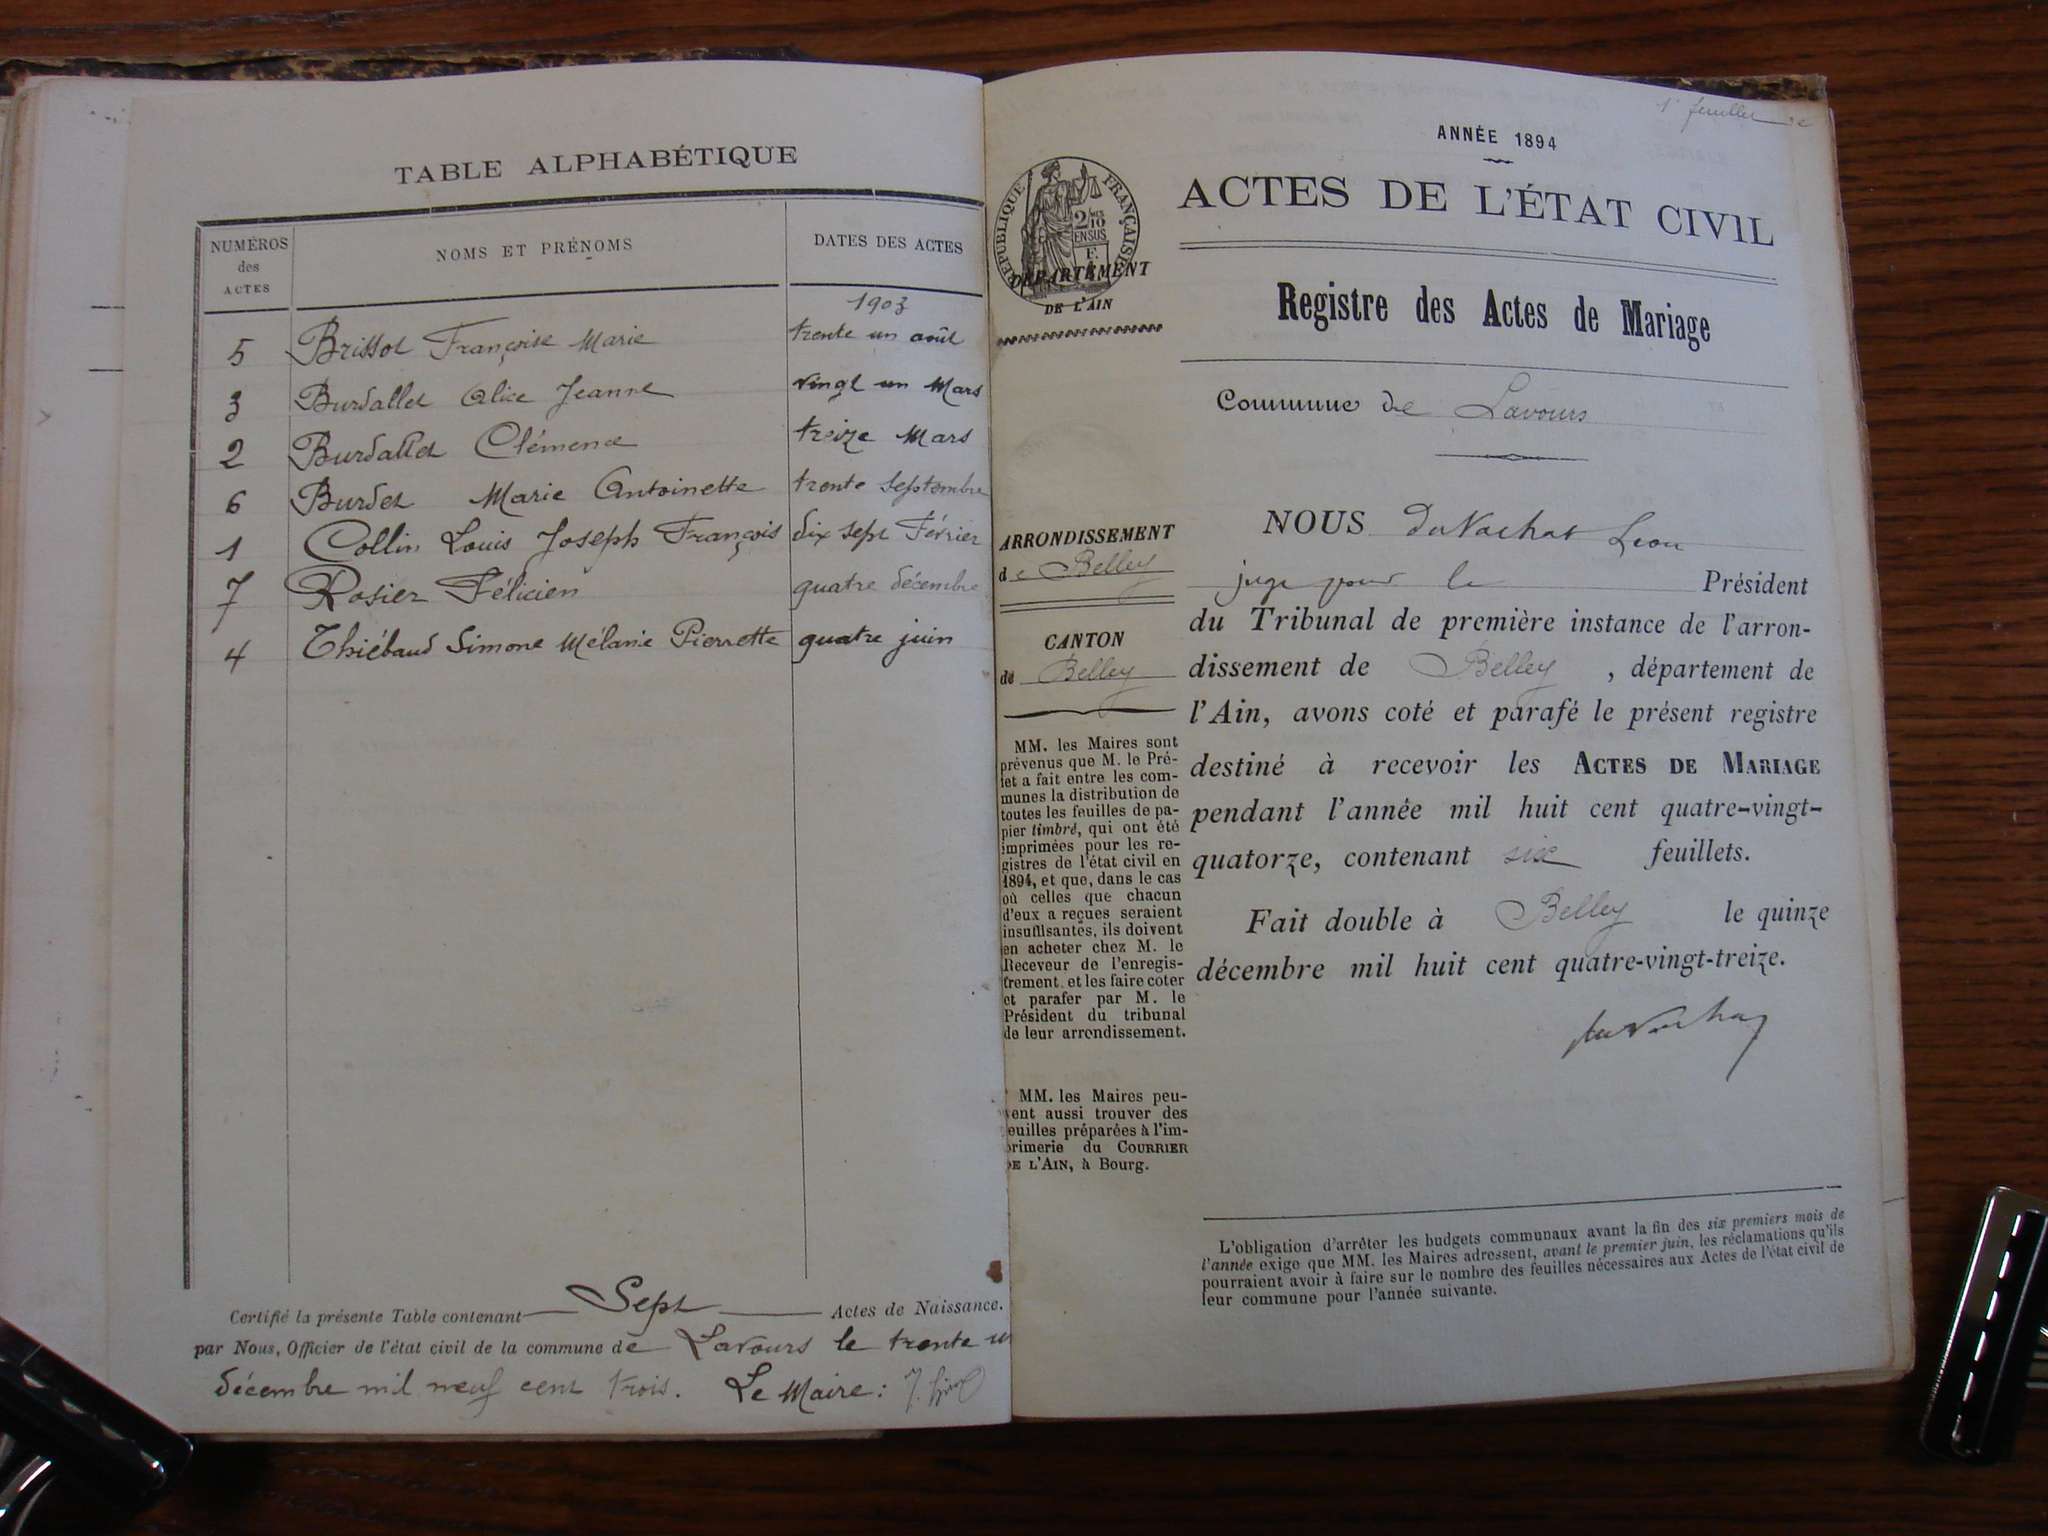 TABLE ALPHABÉTIQUE
NUMÉROS des ACTES
NOMS ET PRÉNOMS
DATES DES ACTES
1903
5 Brissot Françoise Marie trente un août
3 Burdallet Alice Jeanne vingt un Mars
2 Burdallet Clémence treize Mars
6 Burdet Marie Antoinette trente septembre
1 Collin Louis Joseph François dix sept Février
7 Rosier Félicien quatre décembre
4 Thiébaud Simone Mélanie Pierrette quatre juin
Certifié la présente Table contenant Sept Actes de Naissance.
par Nous, Officier de l'état civil de la commune de Lavours le trente un
décembre mil neuf cent trois. Le Maire:
1er feuillet
ANNÉE 1894
ACTES DE L'ÉTAT CIVIL
RÉPUBLIQUE FRANÇAISE
2/10 EN SUS
DÉPARTEMENT
DE L'AIN
Registre des Actes de Mariage
Commune de Lavours
ARRONDISSEMENT
de Belley
CANTON
de Belley
MM. les Maires sont
prévenus que M. le Pré-
fet a fait entre les com-
munes la distribution de
toutes les feuilles de pa-
pier timbré, qui ont été
imprimées pour les re-
gistres de l'état civil en
1894, et que, dans le cas
où celles que chacun
d'eux a reçues seraient
insuffisantes, ils doivent
en acheter chez M. le
Receveur de l'enregis-
trement et les faire coter
et parafer par M. le
Président du tribunal
de leur arrondissement.
MM. les Maires peu-
vent aussi trouver des
feuilles préparées à l'im-
primerie du COURRIER
DE L'AIN, à Bourg.
NOUS DuVachat Léon
juge pour le Président
du Tribunal de première instance de l'arron-
dissement de Belley, département de
l'Ain, avons coté et parafé le présent registre
destiné à recevoir les ACTES DE MARIAGE
pendant l'année mil huit cent quatre-vingt-
quatorze, contenant six feuillets.
Fait double à Belley le quinze
décembre mil huit cent quatre-vingt-treize.
duVachat
L'obligation d'arrêter les budgets communaux avant la fin des six premiers mois de
l'année exige que MM. les Maires adressent, avant le premier juin, les réclamations qu'ils
pourraient avoir à faire sur le nombre des feuilles nécessaires aux Actes de l'état civil de
leur commune pour l'année suivante.